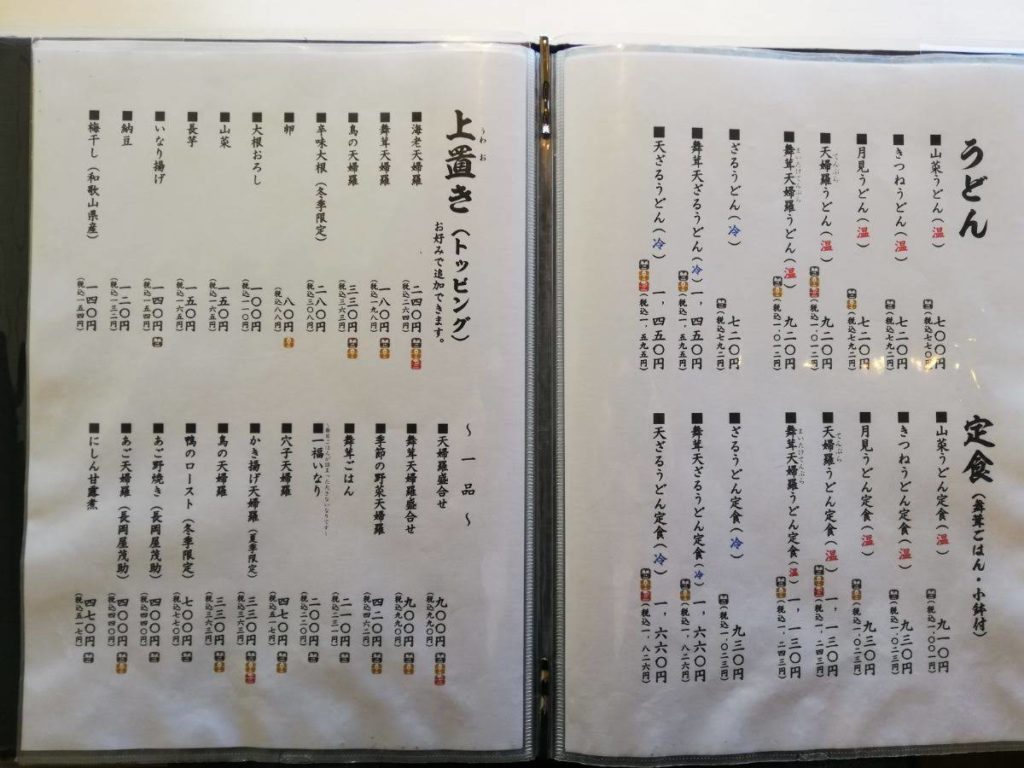 うどん
■山菜うどん（温）
七〇〇円
（税込七七〇円）
■きつねうどん（温）
七二〇円
（税込七九二円）
■月見うどん（温）
七二〇円
（税込七九二円）
■天婦羅うどん（温）
てんぷら
九二〇円
（税込一、〇一二円）
■舞茸天婦羅うどん（温）
まいたけてんぷら
九二〇円
（税込一、〇一二円）
■ざるうどん（冷）
七二〇円
（税込七九二円）
■舞茸天ざるうどん（冷）
一、四五〇円
（税込一、五九五円）
■天ざるうどん（冷）
一、四五〇円
（税込一、五九五円）
定食（舞茸ごはん・小鉢付）
■山菜うどん定食（温）
九一〇円
（税込一、〇〇一円）
■きつねうどん定食（温）
九三〇円
（税込一、〇二三円）
■月見うどん定食（温）
九三〇円
（税込一、〇二三円）
■天婦羅うどん定食（温）
てんぷら
一、一三〇円
（税込一、二四三円）
■舞茸天婦羅うどん定食（温）
まいたけてんぷら
一、一三〇円
（税込一、二四三円）
■ざるうどん定食（冷）
九三〇円
（税込一、〇二三円）
■舞茸天ざるうどん定食（冷）
一、六六〇円
（税込一、八二六円）
■天ざるうどん定食（冷）
一、六六〇円
（税込一、八二六円）
上置き（トッピング）
うわお
お好みで追加できます。
■海老天婦羅
二四〇円
（税込二六四円）
■舞茸天婦羅
一八〇円
（税込一九八円）
■鳥の天婦羅
三三〇円
（税込三六三円）
■辛味大根（冬季限定）
二八〇円
（税込三〇八円）
■卵
八〇円
（税込八八円）
■大根おろし
一〇〇円
（税込一一〇円）
■山菜
一五〇円
（税込一六五円）
■長芋
一五〇円
（税込一六五円）
■いなり揚げ
一四〇円
（税込一五四円）
■納豆
一二〇円
（税込一三二円）
■梅干し（和歌山県産）
一四〇円
（税込一五四円）
～一品～
■天婦羅盛合せ
九〇〇円
（税込九九〇円）
■舞茸天婦羅盛合せ
九〇〇円
（税込九九〇円）
■季節の野菜天婦羅
四二〇円
（税込四六二円）
■舞茸ごはん
二一〇円
（税込二三一円）
■一福いなり
二〇〇円
（税込二二〇円）
■穴子天婦羅
四七〇円
（税込五一七円）
■かき揚げ天婦羅（夏季限定）
三三〇円
（税込三六三円）
■鳥の天婦羅
三三〇円
（税込三六三円）
■鴨のロースト（冬季限定）
七〇〇円
（税込七七〇円）
■あご野焼き（長岡屋茂助）
四〇〇円
（税込四四〇円）
■あご天婦羅（長岡屋茂助）
四〇〇円
（税込四四〇円）
■にしん甘露煮
四七〇円
（税込五一七円）